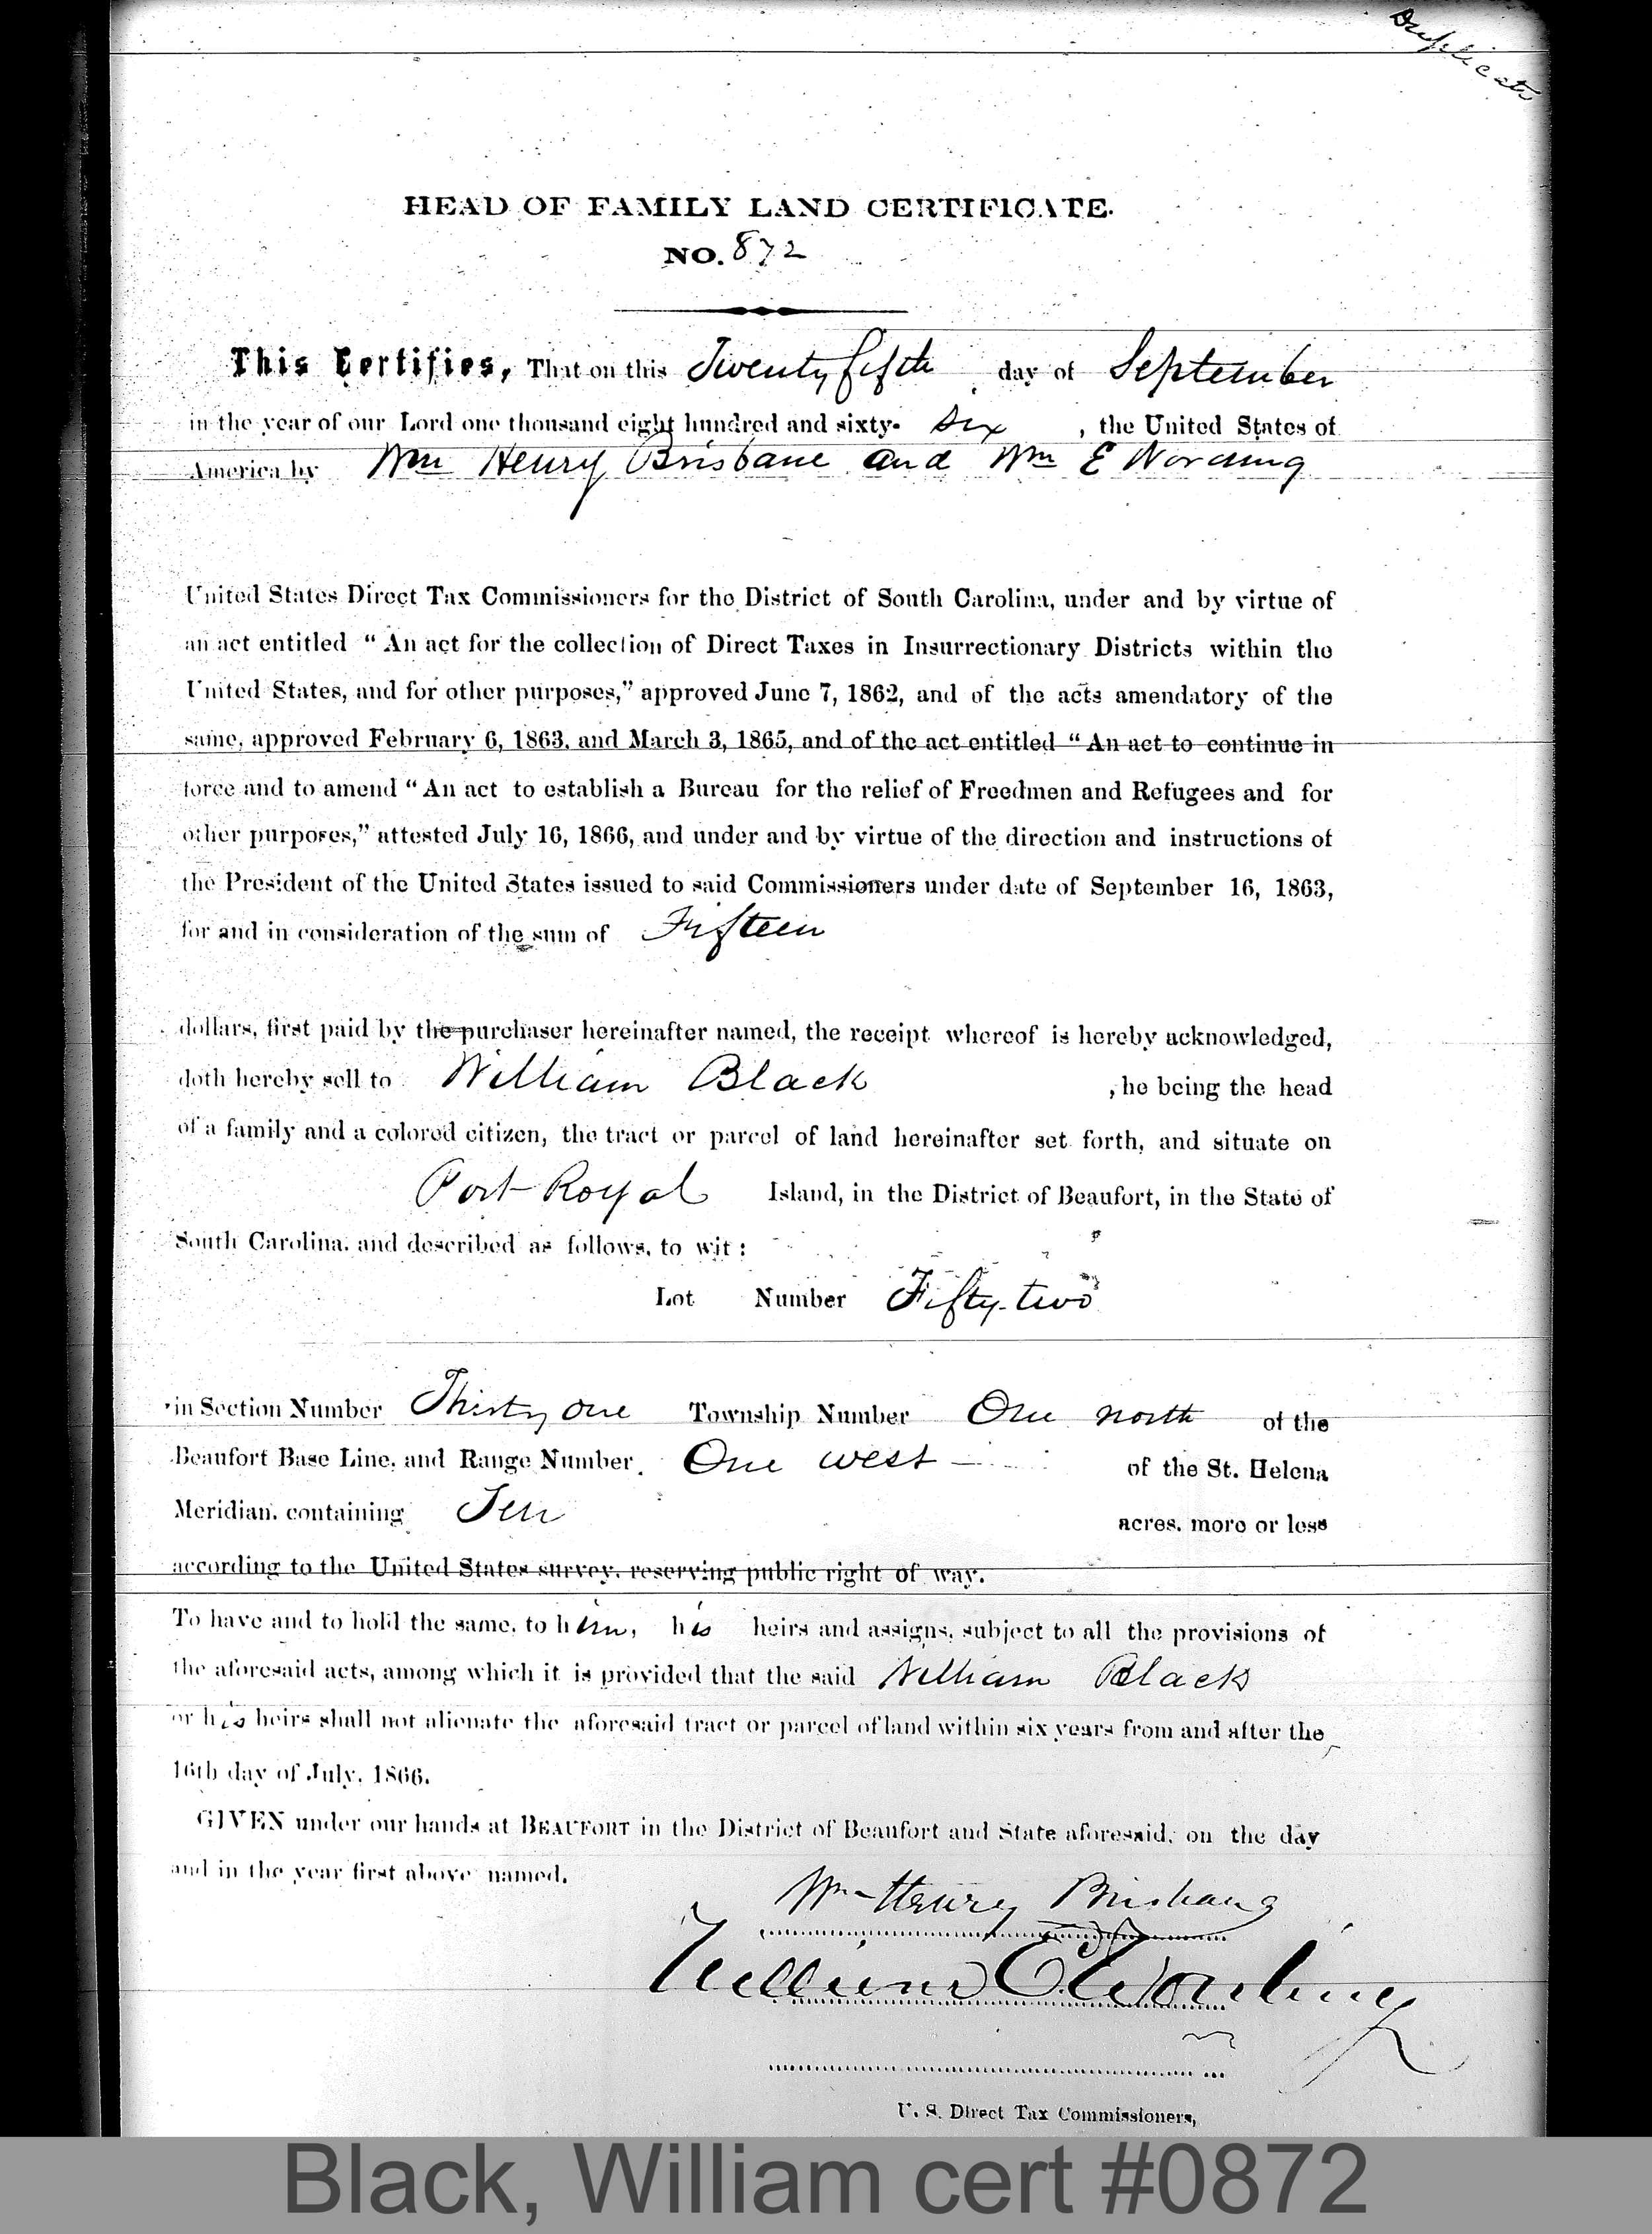 Duplicate
HEAD OF FAMILY LAND CERTIFICATE.
NO. 872
This Certifies, That on this Twenty fifth day of September
in the year of our Lord one thousand eight hundred and sixty- Six , the United States of
America by Wm Henry Brisbane and Wm E Wording
United States Direct Tax Commissioners for the District of South Carolina, under and by virtue of
an act entitled "An act for the collection of Direct Taxes in Insurrectionary Districts within the
United States, and for other purposes," approved June 7, 1862, and of the acts amendatory of the
same, approved February 6, 1863, and March 3, 1865, and of the act entitled "An act to continue in
force and to amend "An act to establish a Bureau for the relief of Freedmen and Refugees and for
other purposes," attested July 16, 1866, and under and by virtue of the direction and instructions of
the President of the United States issued to said Commissioners under date of September 16, 1863,
for and in consideration of the sum of Fifteen
dollars, first paid by the purchaser hereinafter named, the receipt whereof is hereby acknowledged,
doth hereby sell to William Black , he being the head
of a family and a colored citizen, the tract or parcel of land hereinafter set forth, and situate on
Port Royal Island, in the District of Beaufort, in the State of
South Carolina, and described as follows, to wit:
Lot Number Fifty-two
in Section Number Thirty one Township Number One north of the
Beaufort Base Line, and Range Number One west of the St. Helena
Meridian, containing Ten acres, more or less
according to the United States survey, reserving public right of way.
To have and to hold the same, to him, his heirs and assigns, subject to all the provisions of
the aforesaid acts, among which it is provided that the said William Black
or his heirs shall not alienate the aforesaid tract or parcel of land within six years from and after the
16th day of July, 1866.
GIVEN under our hands at BEAUFORT in the District of Beaufort and State aforesaid, on the day
and in the year first above named.
Wm Henry Brisbane
William E. Wording
U. S. Direct Tax Commissioners,
Black, William cert #0872